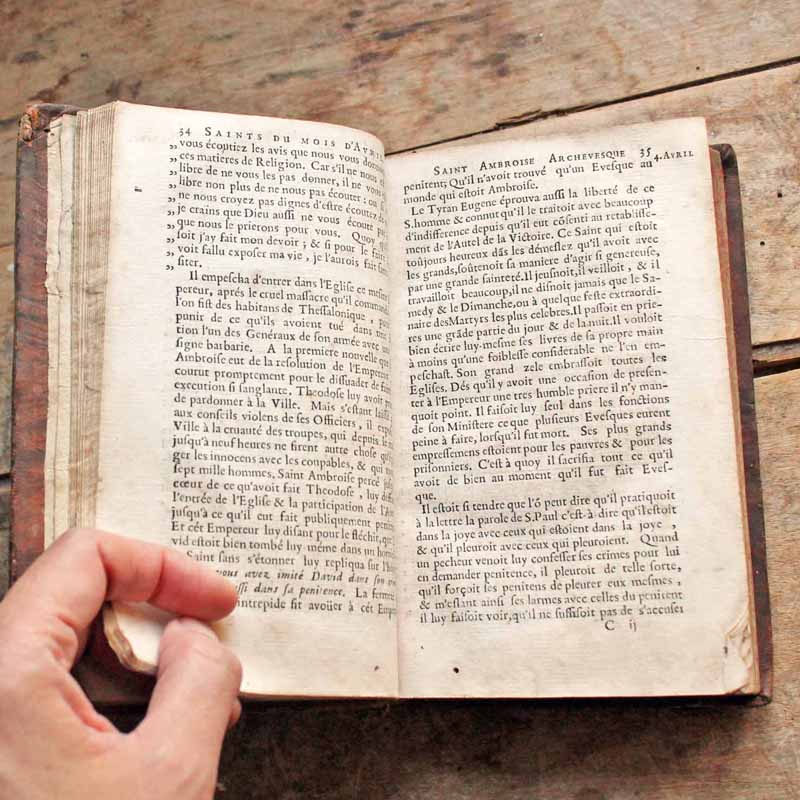 34 SAINTS DU MOIS D'AVRIL
„ vous écoutiez les avis que nous vous donnons
„ ces matieres de Religion. Car s'il ne nous e
„ libre de ne vous les pas donner, il ne vous e
„ libre non plus de ne nous pas écouter : ou si
„ ne nous croyez pas dignes d'estre écoutez de
„ je crains que Dieu aussi ne vous écoute pas
„ que nous le prierons pour vous. Quoy qu
„ soit j'ay fait mon devoir ; & si pour le faire
„ voit fallu exposer ma vie , je l'aurois fait sans
„ siter.
Il empescha d'entrer dans l'Eglise ce mesme
pereur, aprés le cruel massacre qu'il commanda
l'on fist des habitans de Thessalonique , pour
punir de ce qu'ils avoient tué dans une
tion l'un des Genéraux de son armée avec une
signe barbarie. A la premiere nouvelle que
Ambroise eut de la resolution de l'Empereur
courut promptement pour le dissuader de faire
execution si sanglante. Theodose luy avoit pro
de pardonner à la Ville. Mais s'estant laissé
aux conseils violens de ses Officiers , il exp
Ville à la cruauté des troupes, qui depuis le m
jusqu'à neuf heures ne firent autre chose qu'é
ger les innocens avec les coupables, & qui
sept mille hommes. Saint Ambroise percé jus
cœur de ce qu'avoit fait Theodose , luy def
l'entrée de l'Eglise & la participation de l'A
jusqu'à ce qu'il eut fait publiquement penit
Et cét Empereur luy disant pour le fléchir, que
vid estoit bien tombé luy-méme dans un hom
Saint sans s'étonner luy repliqua sur l'h
vous avez imité David dans son
ssi dans sa penitence. La fermeté
intrepide fit avoüer à cét Empe
SAINT AMBROISE ARCHEVESQUE 35 4. AVRIL
penitent; Qu'il n'avoit trouvé qu'un Evesque au
monde qui estoit Ambroise.
Le Tyran Eugene éprouva aussi la liberté de ce
S. homme & connut qu'il le traitoit avec beaucoup
d'indifference depuis qu'il eut cõsenti au retablisse-
ment de l'Autel de la Victoire. Ce Saint qui estoit
toûjours heureux dãs les démeslez qu'il avoit avec
les grands, soûtenoit sa maniere d'agir si genereuse,
par une grande sainteté. Il jeusnoit, il veilloit , & il
travailloit beaucoup, il ne disnoit jamais que le Sa-
medy & le Dimanche, ou à quelque feste extraordi-
naire des Martyrs les plus celebres. Il passoit en prie-
res une grãde partie du jour & de la nuit. Il vouloit
bien écrire luy-mesme ses livres de sa propre main
à moins qu'une foiblesse considerable ne l'en em-
peschast. Son grand zele embrassoit toutes les
Eglises. Dés qu'il y avoit une occasion de presen-
ter à l'Empereur une tres humble priere il n'y man-
quoit point. Il faisoit luy seul dans les fonctions
de son Ministere ce que plusieurs Evesques eurent
peine à faire, lorsqu'il fut mort. Ses plus grands
empressemens estoient pour les pauvres & pour les
prisonniers. C'est à quoy il sacrifia tout ce qu'il
avoit de bien au moment qu'il fut fait Eves-
que.
Il estoit si tendre que l'õ peut dire qu'il pratiquoit
à la lettre la parole de S. Paul c'est-à-dire qu'il estoit
dans la joye avec ceux qui estoient dans la joye ,
& qu'il pleuroit avec ceux qui pleuroient. Quand
un pecheur venoit luy confesser ses crimes pour lui
en demander penitence, il pleuroit de telle sorte,
qu'il forçoit les penitens de pleurer eux mesmes ,
& m'eslant ainsi ses larmes avec celles du penitent
il luy faisoit voir, qu'il ne suffisoit pas de s'accuser
C ij